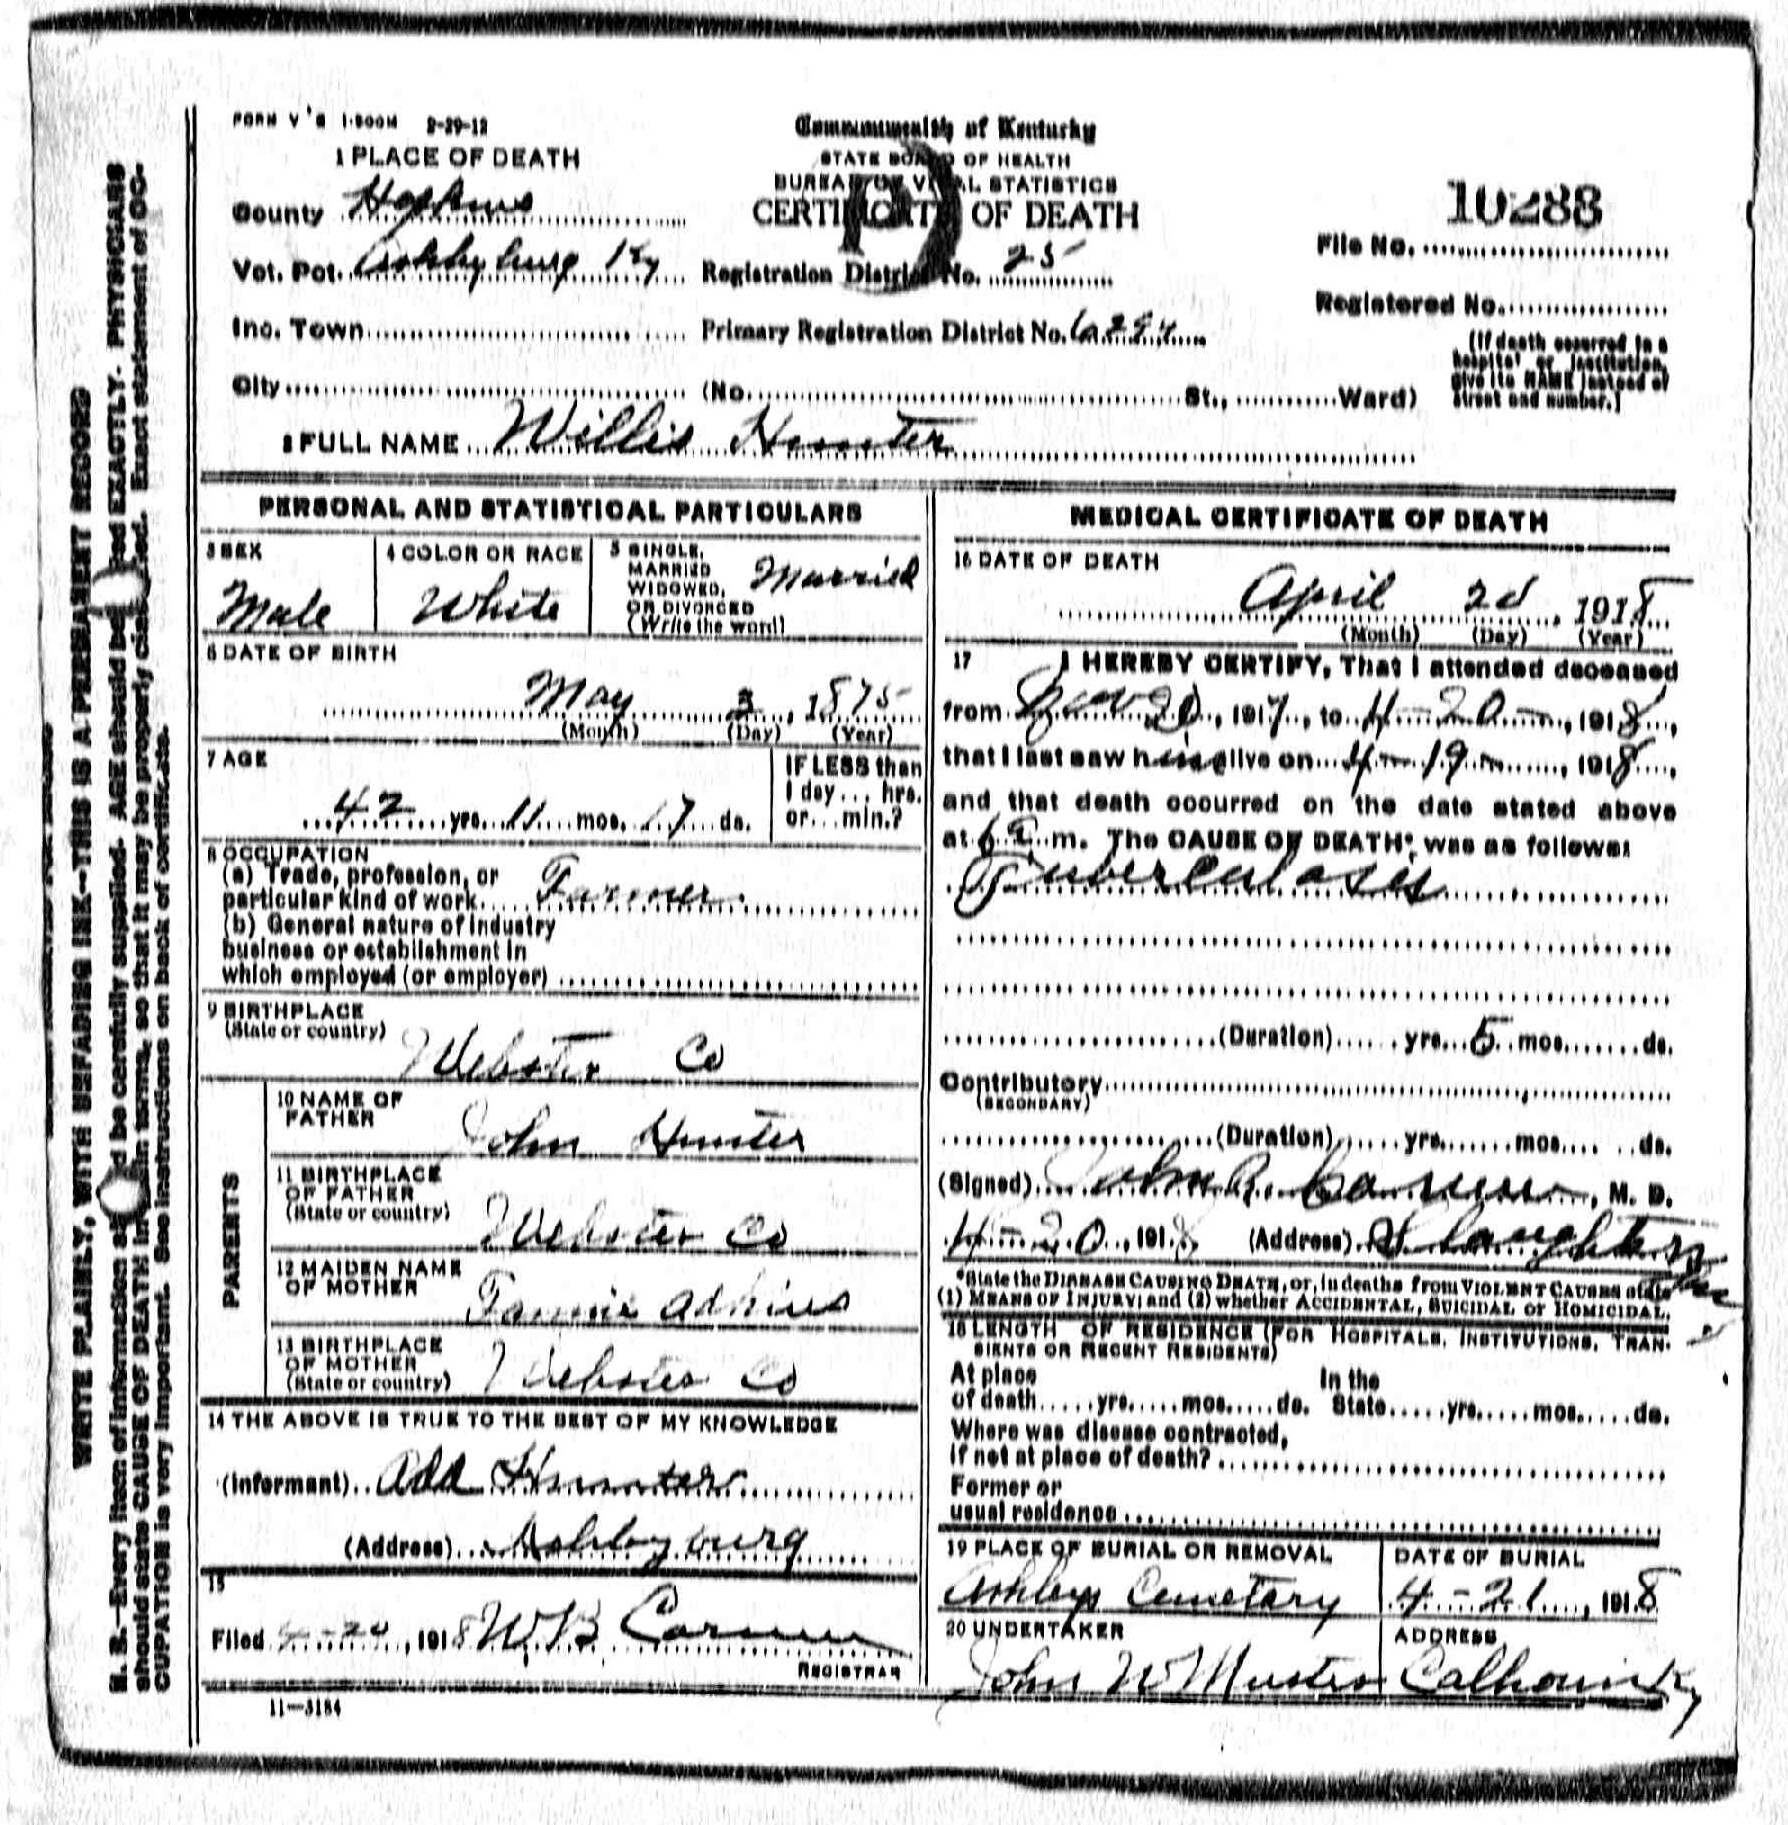 FORM V S 1-500M 2-29-12
Commonwealth of Kentucky
STATE BOARD OF HEALTH
BUREAU OF VITAL STATISTICS
CERTIFICATE OF DEATH
10288
1 PLACE OF DEATH
County Hopkins
Vot. Pct. Ashbyburg Ky Registration District No. 25
File No.
Registered No.
Inc. Town Primary Registration District No. 6294
(If death occurred in a hospital or institution, give its NAME instead of street and number.)
City (No. St., Ward)
2 FULL NAME Willis Hunter
PERSONAL AND STATISTICAL PARTICULARS
3 SEX Male
4 COLOR OR RACE White
5 SINGLE, MARRIED WIDOWED, OR DIVORCED (Write the word) Married
6 DATE OF BIRTH
May 3, 1875
(Month) (Day) (Year)
7 AGE
42 yrs. 11 mos. 17 ds.
IF LESS than 1 day... hrs. or... min.?
8 OCCUPATION
(a) Trade, profession, or
particular kind of work Farmer
(b) General nature of industry
business or establishment in
which employed (or employer)
9 BIRTHPLACE
(State or country) Webster Co
PARENTS
10 NAME OF FATHER John Hunter
11 BIRTHPLACE OF FATHER (State or country) Webster Co
12 MAIDEN NAME OF MOTHER Fannie Adkins
13 BIRTHPLACE OF MOTHER (State or country) Webster Co
14 THE ABOVE IS TRUE TO THE BEST OF MY KNOWLEDGE
(Informant) Add Hunter
(Address) Ashbyburg
15
Filed 4-24, 1918 W B
REGISTRAR
11-3184
MEDICAL CERTIFICATE OF DEATH
16 DATE OF DEATH
April 20, 1918
(Month) (Day) (Year)
17 I HEREBY CERTIFY, That I attended deceased
from Nov 20, 1917, to 4-20, 1918,
that I last saw him alive on 4-19, 1918,
and that death occurred on the date stated above
at 6 a m. The CAUSE OF DEATH* was as follows:
Tuberculosis
(Duration) yrs. 5 mos. ds.
Contributory
(SECONDARY)
(Duration) yrs. mos. ds.
(Signed) John, M. D.
4-20, 1918 (Address) Slaughters
*State the DISEASE CAUSING DEATH, or, in deaths from VIOLENT CAUSES state
(1) MEANS OF INJURY; and (2) whether ACCIDENTAL, SUICIDAL or HOMICIDAL.
18 LENGTH OF RESIDENCE (FOR HOSPITALS, INSTITUTIONS, TRAN-
SIENTS OR RECENT RESIDENTS)
At place of death yrs. mos. ds. In the State yrs. mos. ds.
Where was disease contracted,
if not at place of death?
Former or
usual residence
19 PLACE OF BURIAL OR REMOVAL Ashbys Cemetary
DATE OF BURIAL 4-21, 1918
20 UNDERTAKER John W Muster
ADDRESS Calhoun Ky
WRITE PLAINLY, WITH UNFADING INK—THIS IS A PERMANENT RECORD
N. B.—Every item of information should be carefully supplied. AGE should be stated EXACTLY. PHYSICIANS
should state CAUSE OF DEATH in plain terms, so that it may be properly classified. Exact statement of OC-
CUPATION is very important. See instructions on back of certificate.